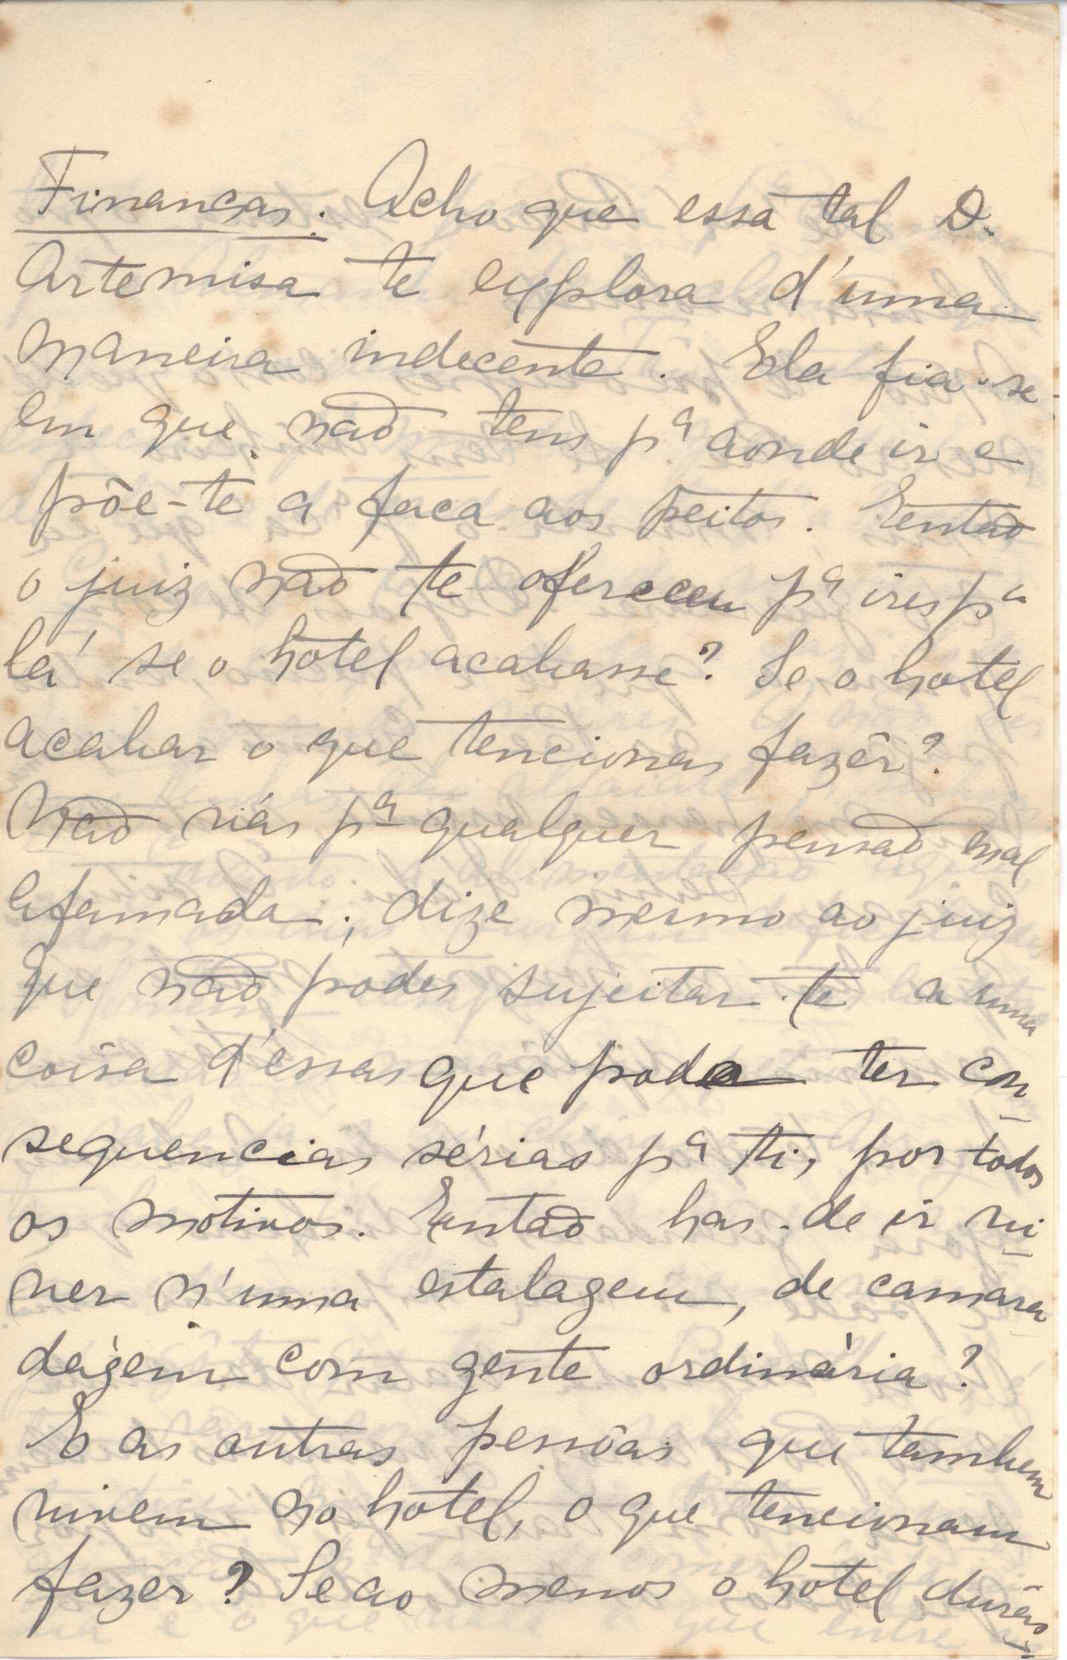 Finanças. Acho que essa tal D.
Artemisa te explora d'uma
maneira indecente. Ela fia-se
em que não tens pª aonde ir e
põe-te a faca aos peitos. Então
o juiz não te ofereceu pª ires pª
lá se o hotel acabasse? Se o hotel
acabar o que tencionas fazêr?
Não vás pª qualquer pensão mal
afamada; dize mesmo ao juiz
que não podes sujeitar-te a uma
coisa d'essas que poda ter con-
sequencias sérias pª ti, por todos
os motivos. Então has-de ir vi-
ver n'uma estalagem, de camara
dágem com gente ordinária?
E as outras pessôas que tambem
vivem no hotel, o que tencionam
fazer? Se ao menos o hotel durás